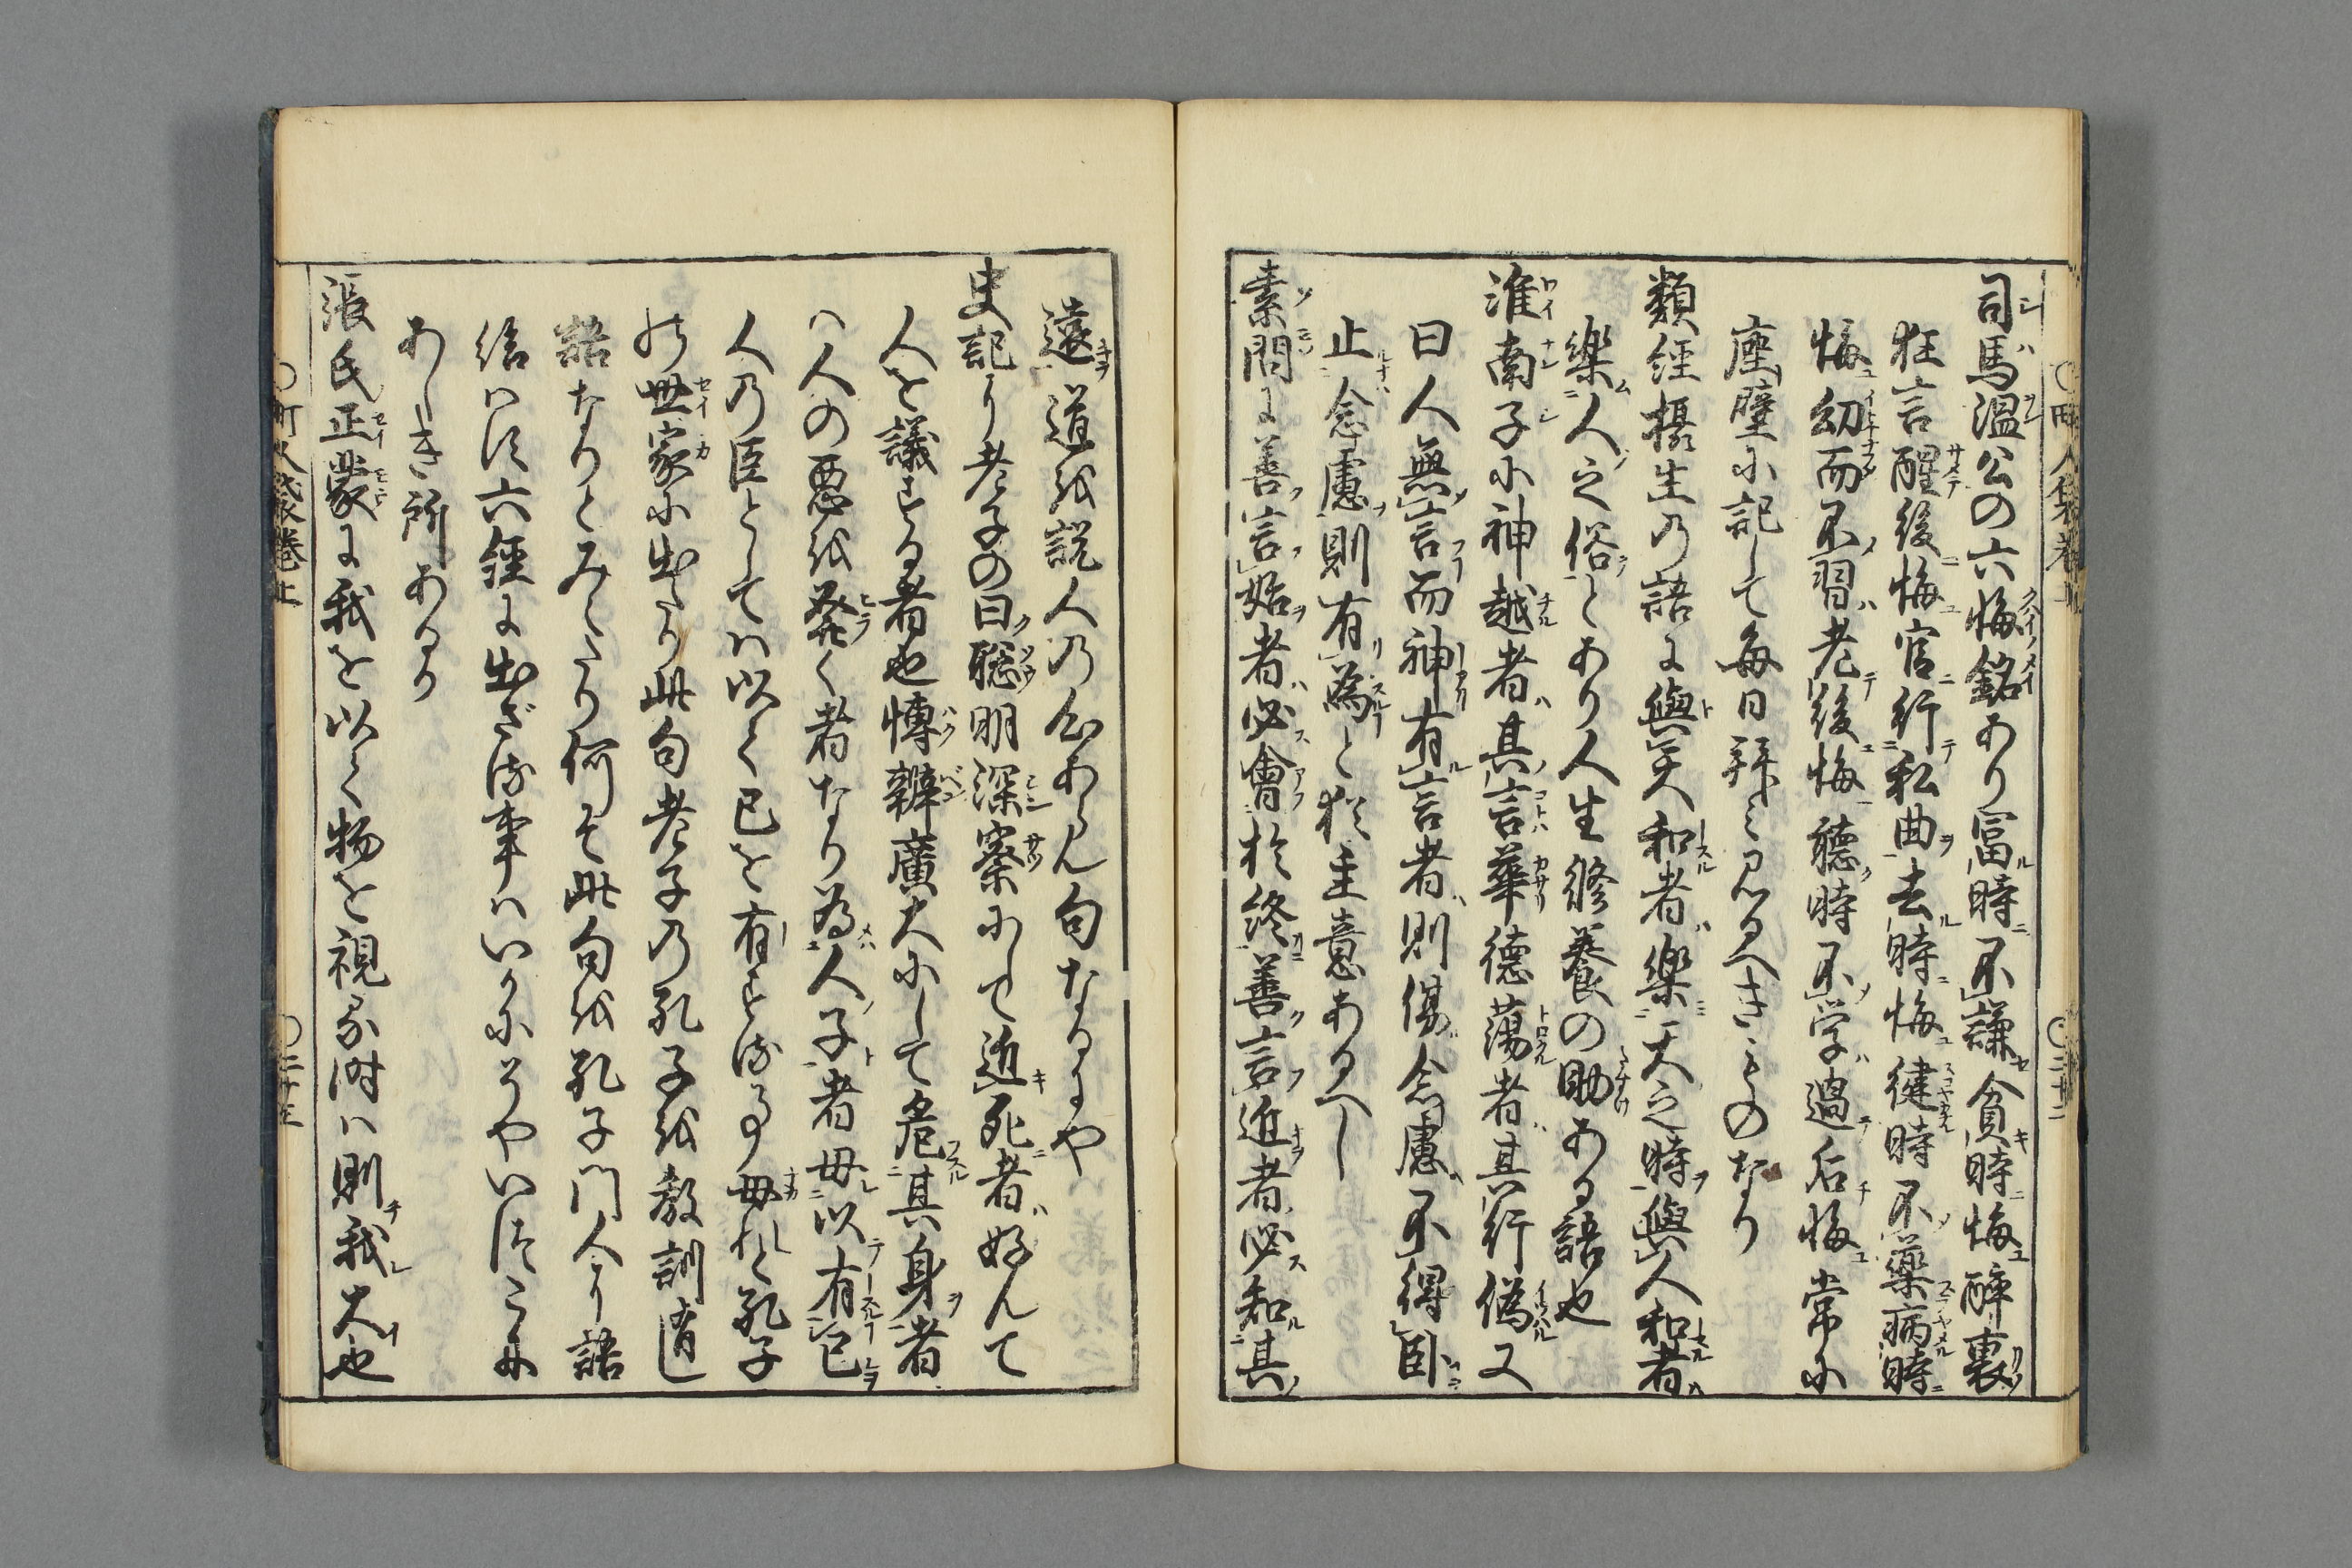 司馬温公の六悔銘あり富時不謙貧時悔醉裏
狂言醒後悔官行私曲去時悔健時不藥病時
悔幼而不習老後悔聴時不学過后悔常に
座壁に記して毎日拝し見るへきものなり
類経摂生の語に與天和者樂天之時與人和者
樂人之俗とあり人生修養の助ある語也
淮南子に神越者其言華徳蕩者其行偽又
曰人無言而神有言者則傷念慮不得臥
止念慮則有為と猶主意あるへし
素問に善言始者必會於終善言近者必知其
遠道を説人の心あらん句なるにや
史記に老子の曰聡明深察にして近死者好んて
人を議する者也博辯廣大にして危其身者
ハ人の悪を発く者なり為人子者毋以有己
人の臣としてハ以て己を有する事毋れと孔子
の世家に出たり此句老子の孔子を教訓有し
語なりとみへたり何そ此句を孔子門人に語
給はす六経に出ざる事ハいかにそや
あしき所あるか
張氏正蒙に我を以て物を視る時ハ則我大也
〇町人袋巻上
〇二十二
〇町人袋巻上
〇二十三